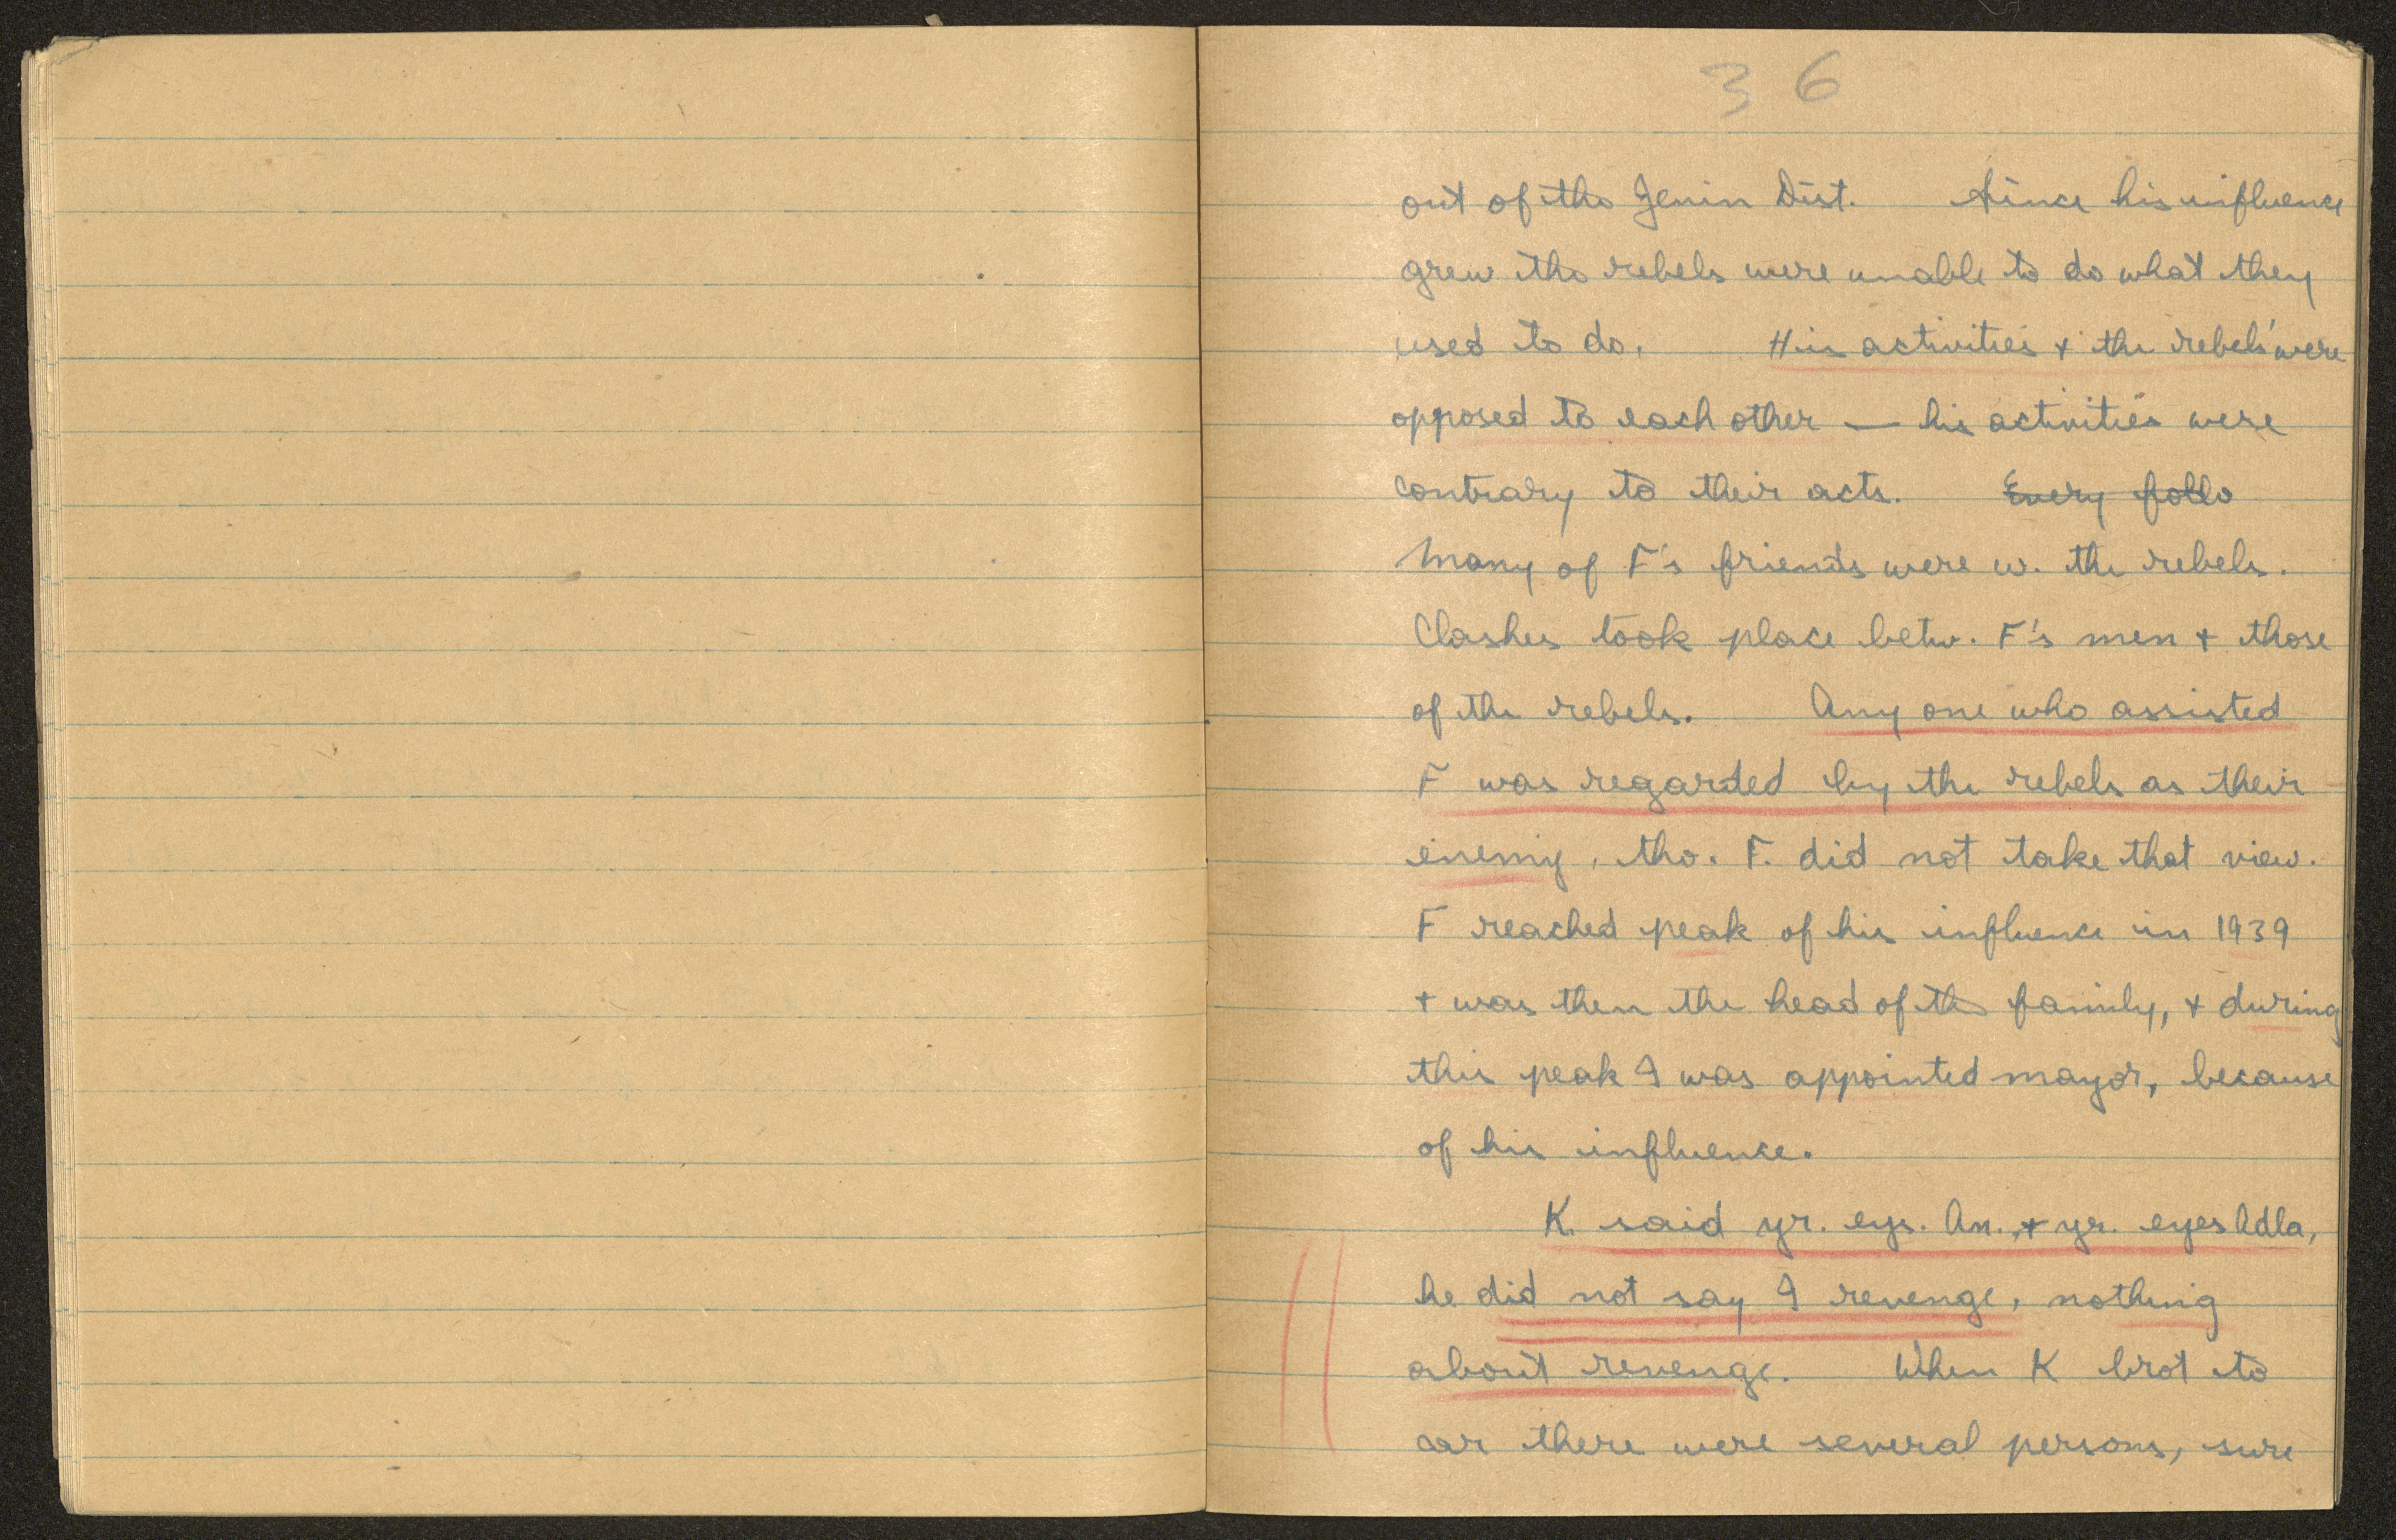 36
out of the Jenin Dist. Since his influence
grew the rebels were unable to do what they
used to do. His activities + the rebels' were
opposed to each other — his activities were
contrary to their acts. Every follo
Many of F's friends were w. the rebels.
Clashes took place betw. F's men + those
of the rebels. Any one who assisted
F was regarded by the rebels as their
enemy, tho. F. did not take that view.
F reached peak of his influence in 1939
+ was then the head of the family, + during
this peak I was appointed mayor, because
of his influence.
K. said yr. eys. An., + yr. eyes Adla,
he did not say I revenge, nothing
about revenge. When K brot to
car there were several persons, sure